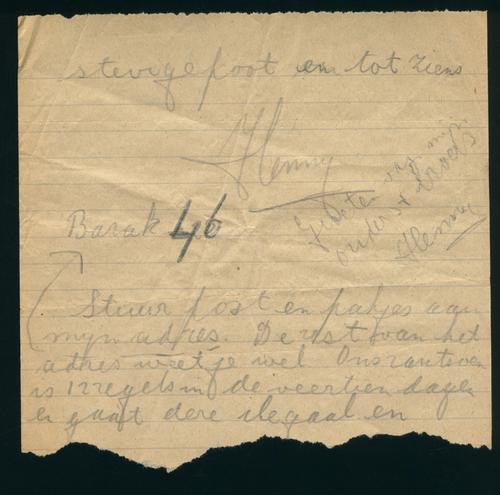 stevige poot en tot ziens
Henny
Groeten van mijn
ouders & broeds
Henny
Barak 46
Stuur post en pakjes aan
mijn adres. De rest van het
adres weet je wel. Ons
is 12 regels in de veertien dagen
en gaat deze ilegaal en